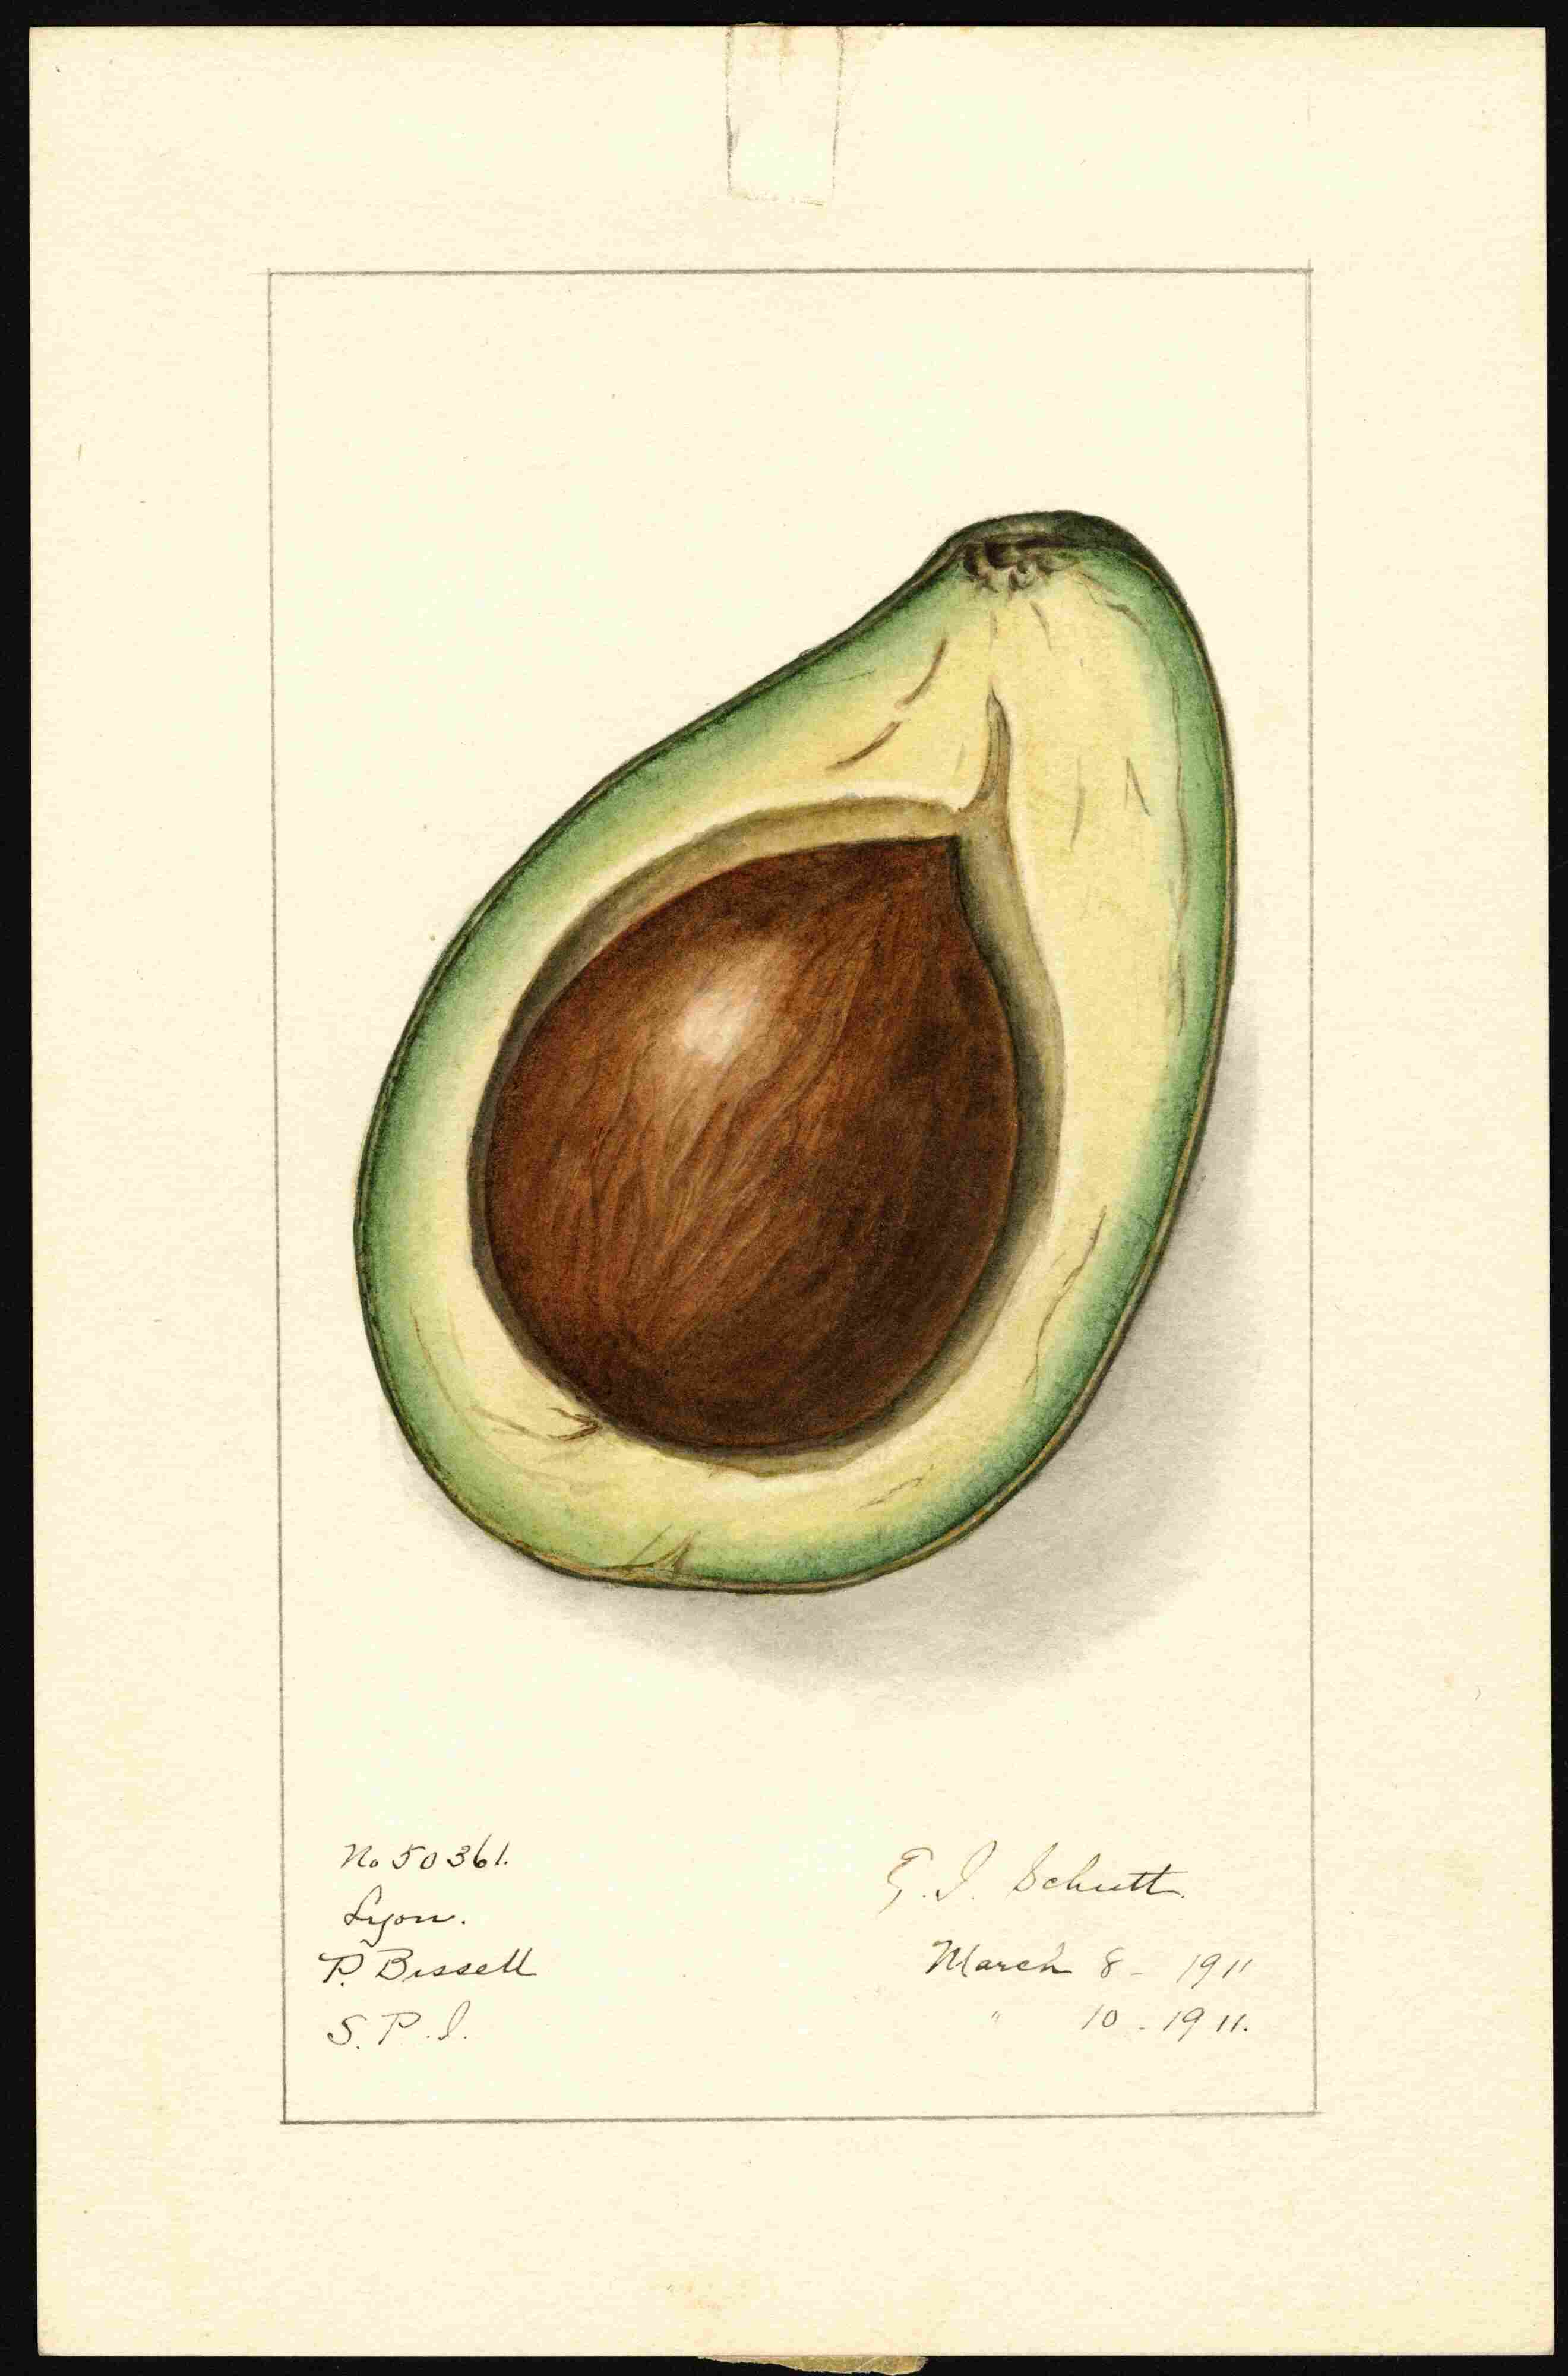 No 50361.
Lyon.
P. Bissell
S. P. I.
E. I. Schutt.
March 8 - 1911
" 10 - 1911.